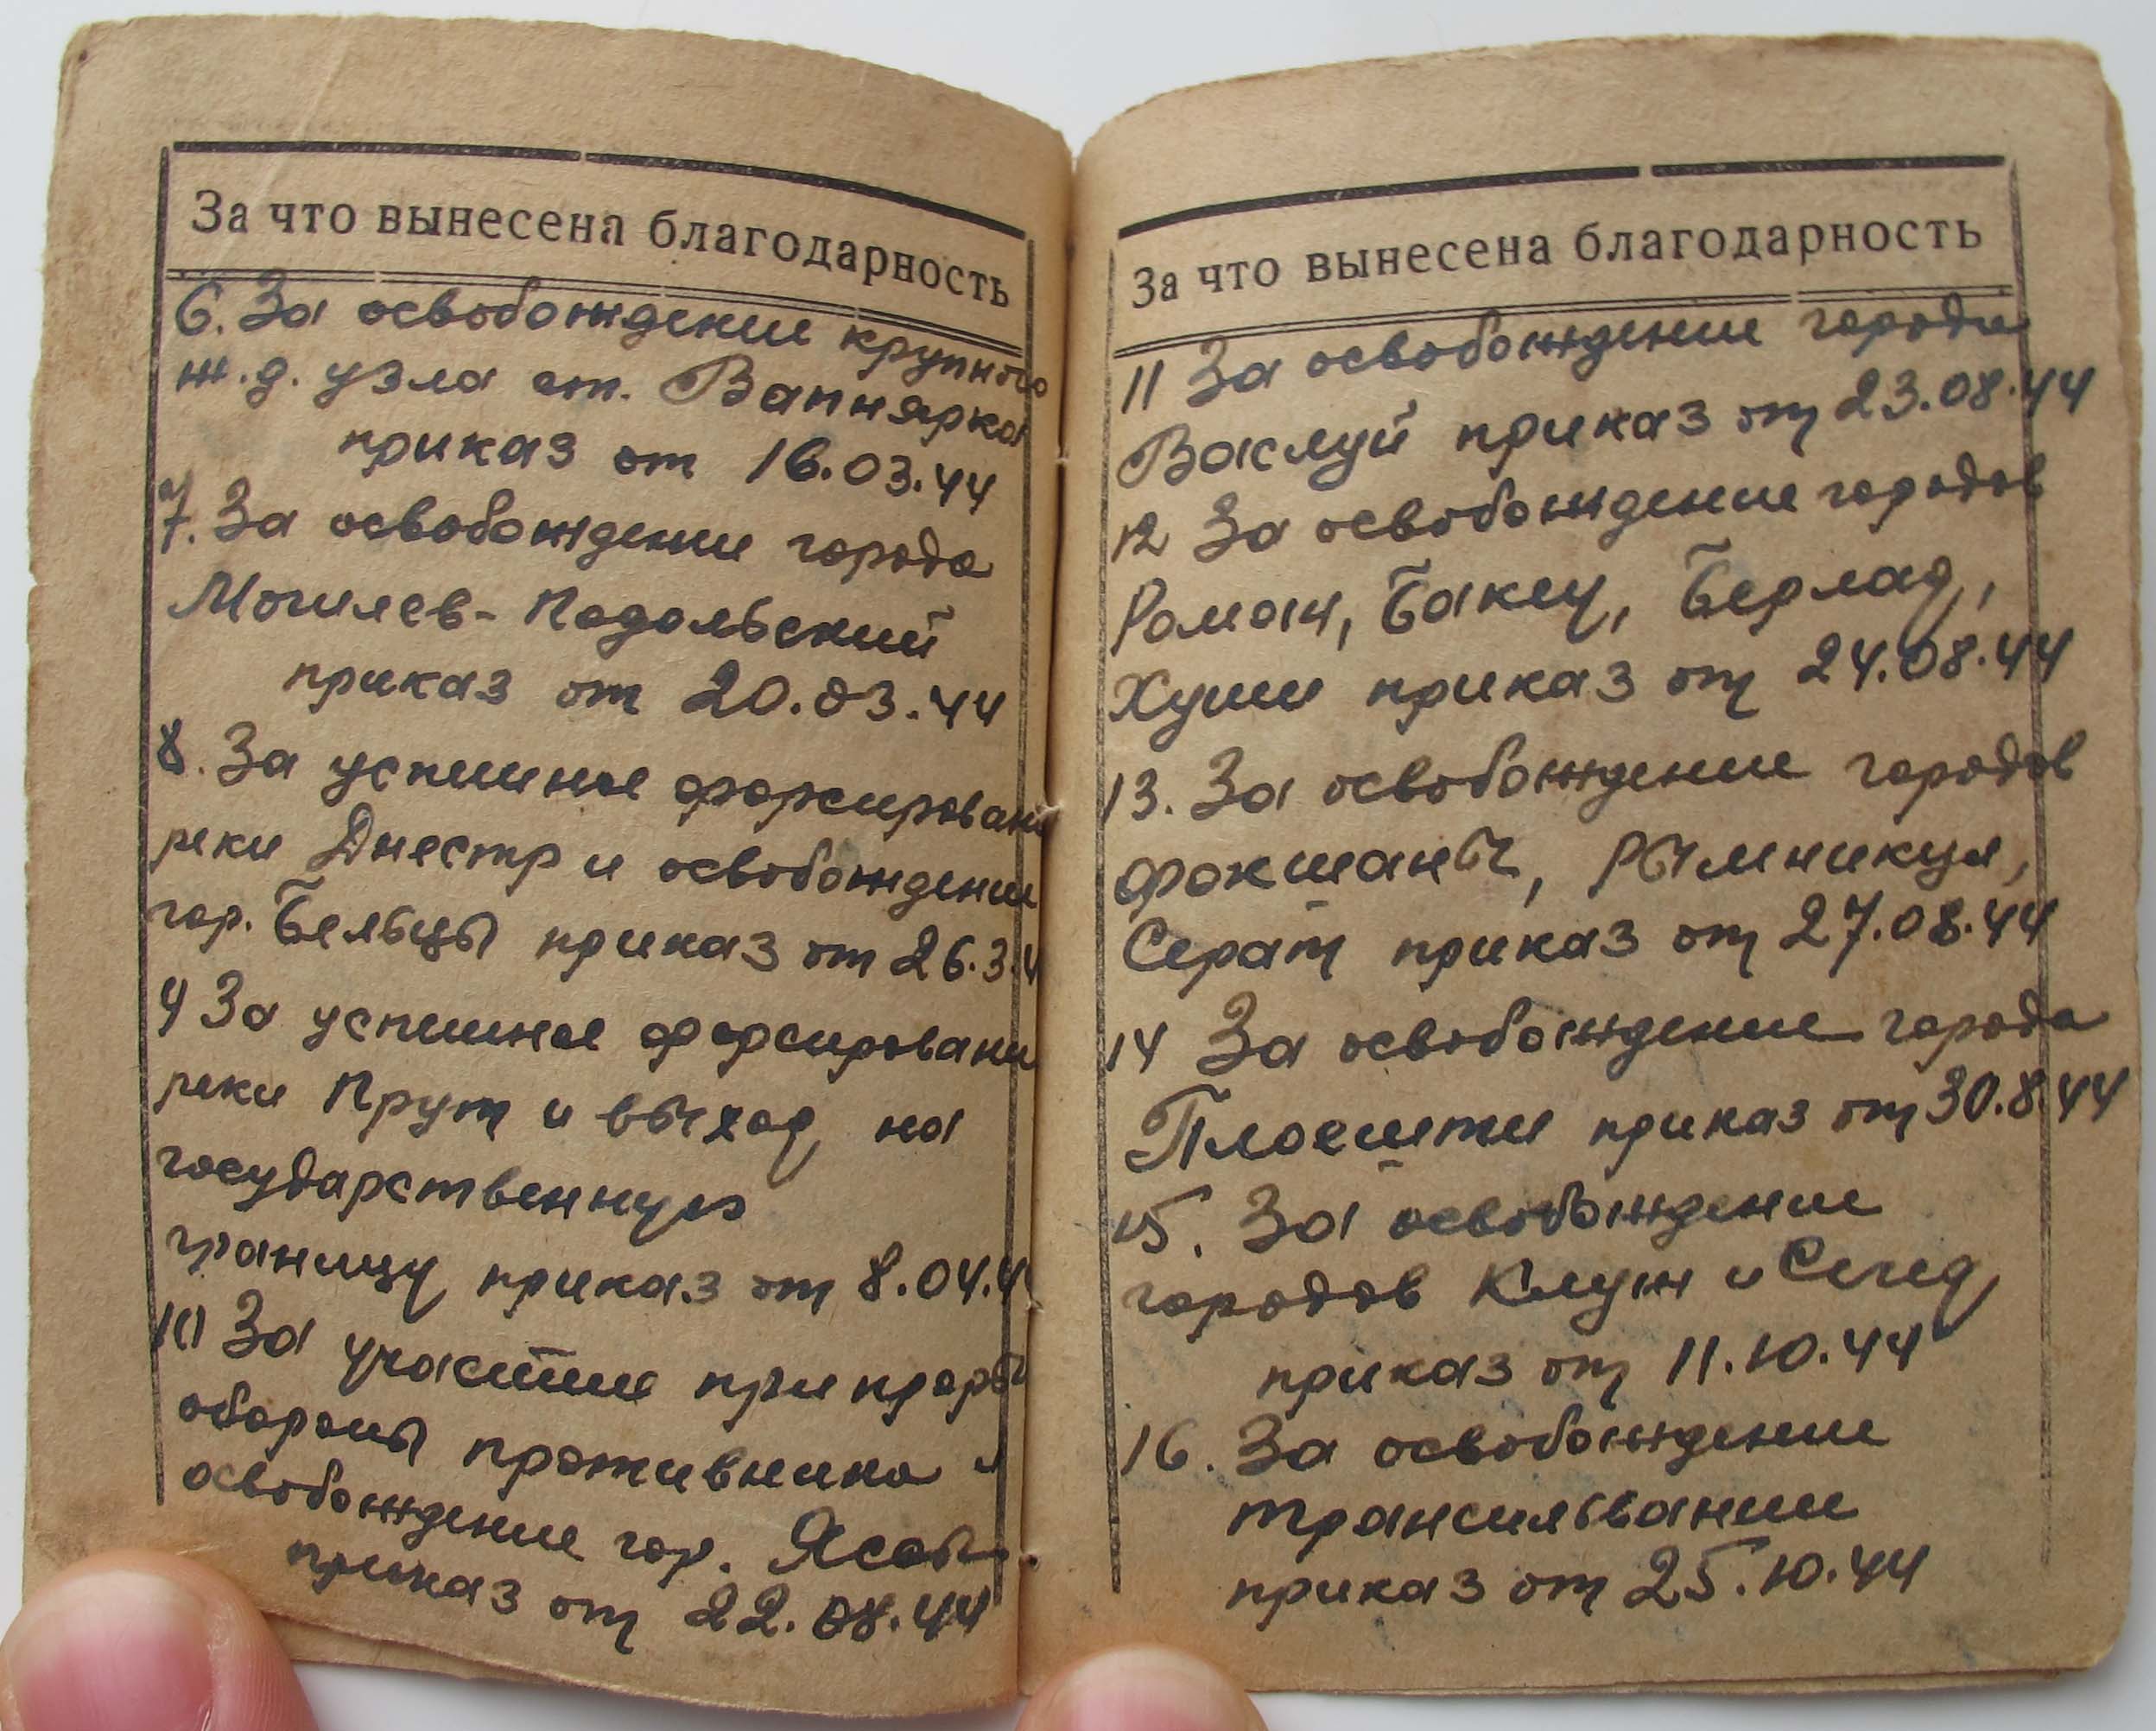 За что вынесена благодарность
6. За освобождение крупного
ж.д. узла ст. Вапнярка
приказ от 16.03.44
7. За освобождение города
Могилев-Подольский
приказ от 20.03.44
8. За успешное форсировани
реки Днестр и освобождение
гор. Бельцы приказ от 26.3.4
9 За успешное форсировани
реки Прут и выход на
государственную
границу приказ от 8.04.4
10 За участие при проры
обороны противника и
освобождение гор. Яссы
приказ от 22.08.44
За что вынесена благодарность
11 За освобождение города
Васлуй приказ от 23.08.44
12 За освобождение городов
Роман, Бакеу, Берлад,
Хуши приказ от 24.08.44
13. За освобождение городов
Фокшаны, Рымникул,
Серат приказ от 27.08.44
14 За освобождение города
Плоешти приказ от 30.8.44
15. За освобождение
городов Клуж и Сегед
приказ от 11.10.44
16. За освобождение
трансильвании
приказ от 25.10.44